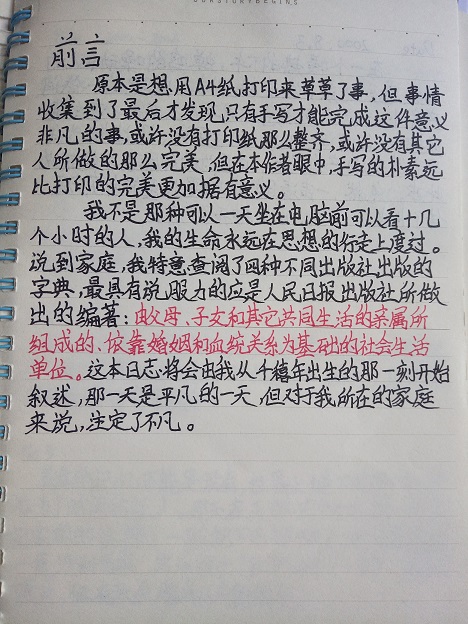 OURSTORYBEGINS
前言
原本是想用A4纸打印来草草了事，但事情
收集到了最后才发现，只有手写才能完成这件意义
非凡的事，或许没有打印纸那么整齐，或许没有其它
人所做的那么完美，但在本作者眼中，手写的朴素远
比打印的完美更加据有意义。
我不是那种可以一天坐在电脑前可以看十几
个小时的人，我的生命永远在思想的行走上度过。
说到家庭，我特意查阅了四种不同出版社出版的
字典，最具有说服力的应是人民日报出版社所做
出的编著：由父母、子女和其它共同生活的亲属所
组成的、依靠婚姻和血统关系为基础的社会生活
单位。这本日志将会由我从千禧年出生的那一刻开始
叙述，那一天是平凡的一天，但对于我所在的家庭
来说，注定了不凡。